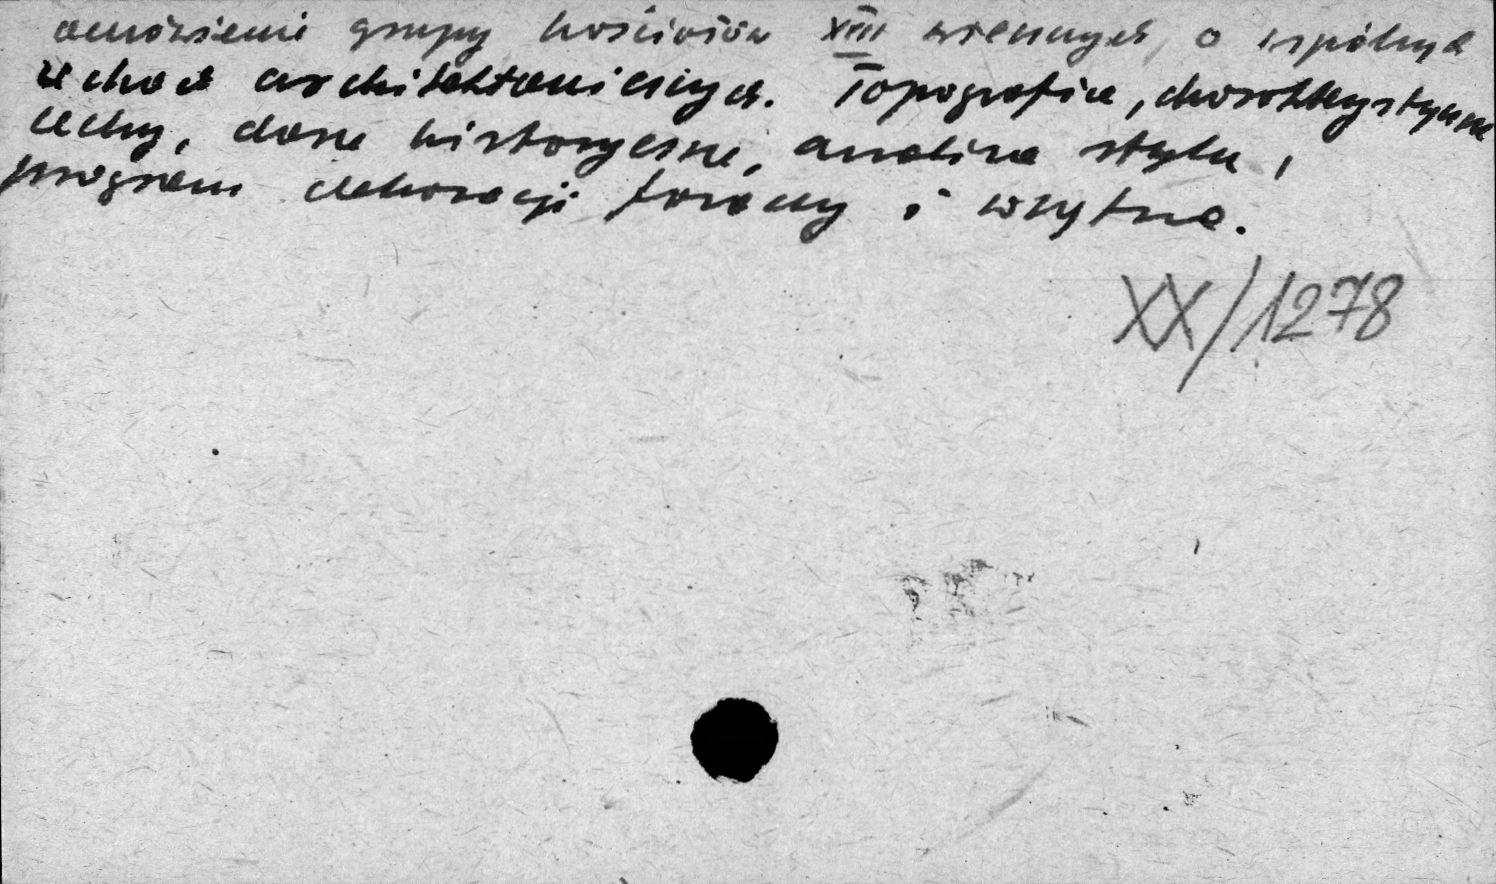 omówienie grupy kościołów XIII wiecznych, o wspólnych
cechach architektonicznych. Topografia, charakterystyczne
cechy, dane historyczne, analiza stylu,
program dekoracji fasady i wnętrza.
XX/1278